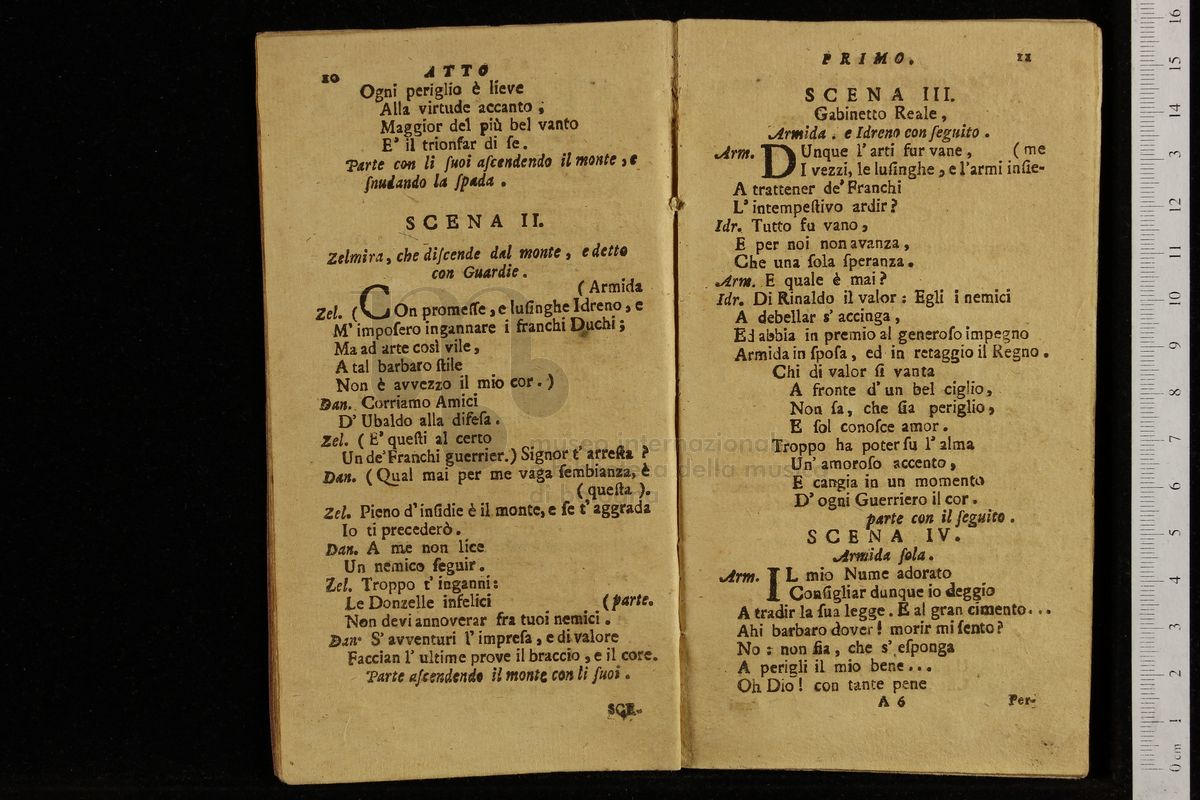 10 ATTO
Ogni periglio è lieve
Alla virtude accanto ;
Maggior del più bel vanto
E' il trionfar di ſe.
Parte con li ſuoi aſcendendo il monte, e
ſnudando la ſpada .
SCENA II.
Zelmira, che diſcende dal monte, e detto
con Guardie .
( Armida
Zel. ( COn promeſſe, e luſinghe Idreno, e
M' impoſero ingannare i franchi Duchi ;
Ma ad arte così vile,
A tal barbaro ſtile
Non è avvezzo il mio cor. )
Dan. Corriamo Amici
D' Ubaldo alla difeſa .
Zel. ( E' queſti al certo
Un de' Franchi guerrier.) Signor t' arreſta ?
Dan. ( Qual mai per me vaga ſembianza, è
( queſta ).
Zel. Pieno d' inſidie è il monte, e ſe t' aggrada
Io ti precederò .
Dan. A me non lice
Un nemico ſeguir .
Zel. Troppo t' inganni :
Le Donzelle infelici (parte.
Non devi annoverar fra tuoi nemici .
Dan. S' avventuri l' impreſa, e di valore
Faccian l' ultime prove il braccio, e il core.
Parte aſcendendo il monte con li ſuoi .
SCE-
PRIMO. 11
SCENA III.
Gabinetto Reale,
Armida . e Idreno con ſeguito .
Arm. DUnque l' arti fur vane, ( me
I vezzi, le luſinghe, e l'armi inſie-
A trattener de' Franchi
L' intempeſtivo ardir ?
Idr. Tutto fu vano,
E per noi non avanza,
Che una ſola ſperanza .
Arm. E quale è mai ?
Idr. Di Rinaldo il valor : Egli i nemici
A debellar s' accinga,
Ed abbia in premio al generoſo impegno
Armida in ſpoſa, ed in retaggio il Regno .
Chi di valor ſi vanta
A fronte d' un bel ciglio,
Non ſa, che ſia periglio,
E ſol conoſce amor .
Troppo ha poter ſu l' alma
Un' amoroſo accento,
E cangia in un momento
D' ogni Guerriero il cor .
parte con il ſeguito .
SCENA IV.
Armida ſola .
Arm. IL mio Nume adorato
Conſigliar dunque io deggio
A tradir la ſua legge . E al gran cimento...
Ahi barbaro dover ! morir mi ſento ?
No : non ſia, che s' eſponga
A perigli il mio bene...
Oh Dio ! con tante pene
A 6 Per-
museo internazionale
e biblioteca della musica
di bologna
0 cm 1 2 3 4 5 6 7 8 9 10 11 12 13 14 15 16